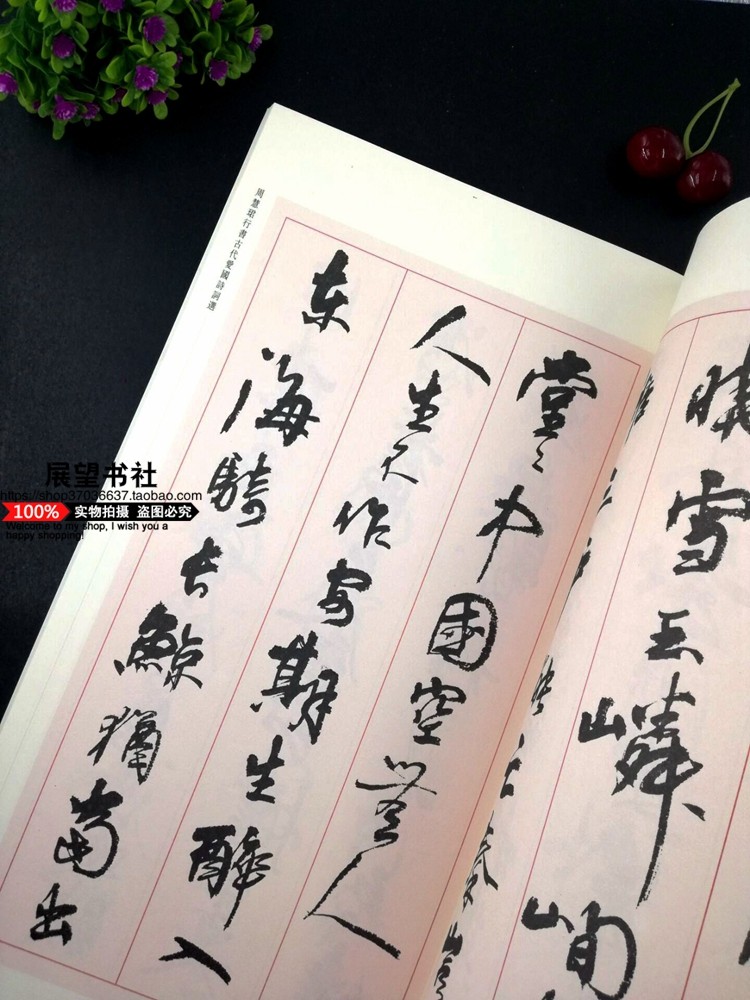 雪玉嶙峋
堂〻中國空無人
人生不作安期生醉入
东海騎長鯨猶當出
周慧珺行書古代愛國詩詞選
展望书社
https://shop37036637.taobao.com
100% 实物拍摄 盗图必究
Welcome to my shop, I wish you a
happy shopping!